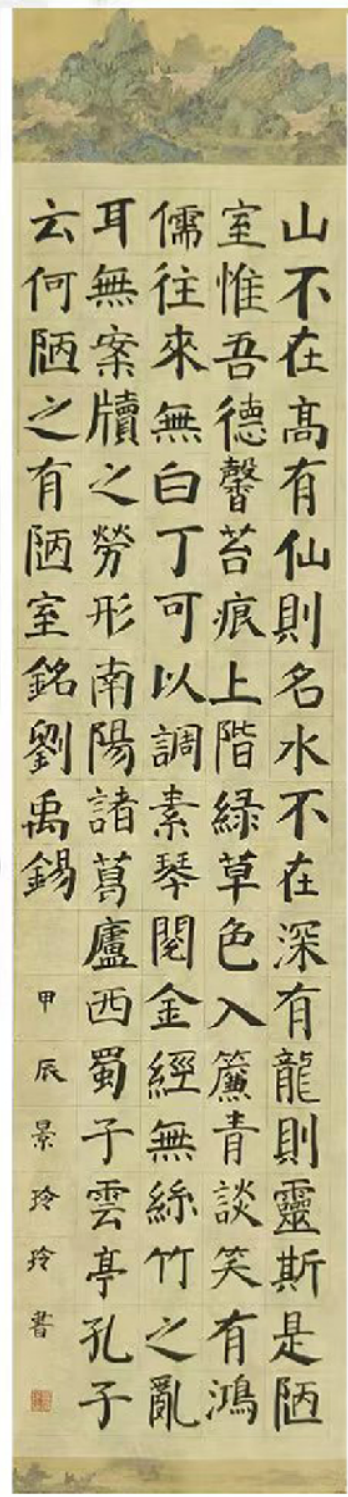 山不在高有仙則名水不在深有龍則靈斯是陋
室惟吾德馨苔痕上階綠草色入簾青談笑有鴻
儒往來無白丁可以調素琴閱金經無絲竹之亂
耳無案牘之勞形南陽諸葛廬西蜀子雲亭孔子
云何陋之有陋室銘劉禹錫
甲辰景玲玲書